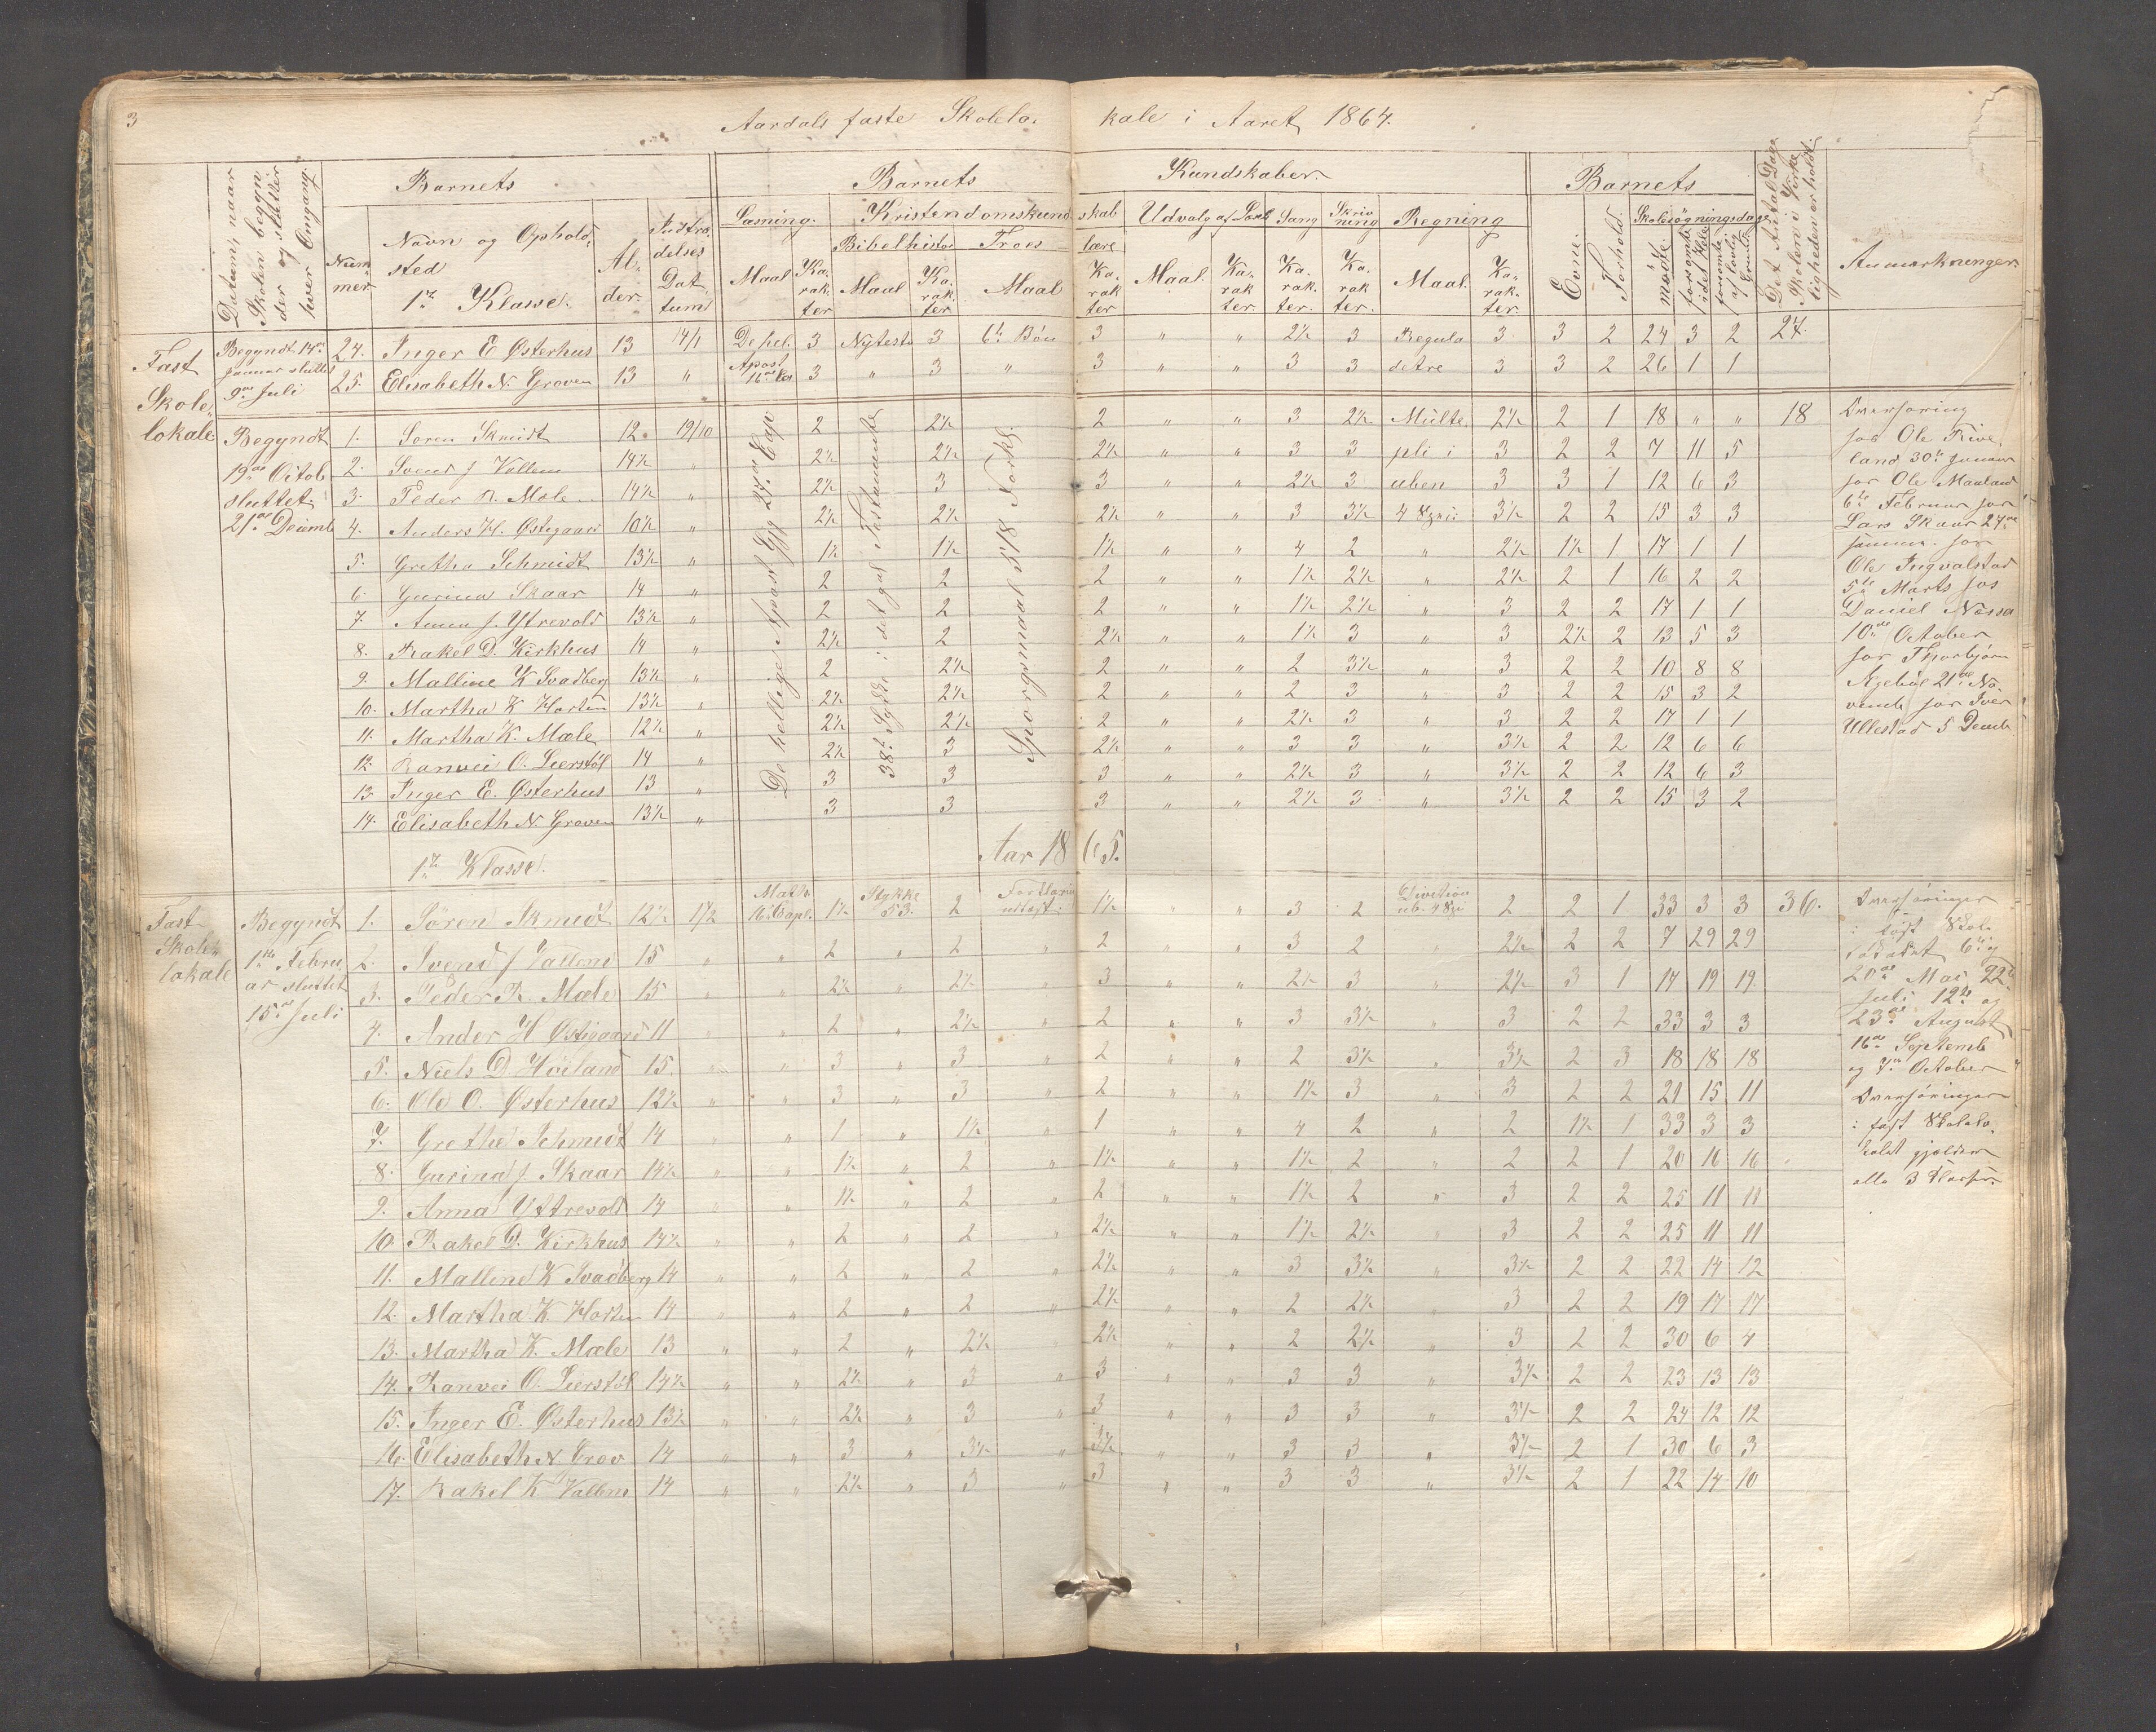 3 Aardals faste Skolelo- kale i Aaret 1864.
Datum, naar Skolen begynder og slutter hver Omgang.
Barnets
Nummer
Navn og Opholdssted
1ste Klasse.
Alder.
Indtrædelses Datum
Barnets Kundskaber
Læsning. Kristendomskundskab
Maal Karakter
Bibelhistor
Maal Karakter
Troeslære
Maal Karakter
Udvalg af Læseb Maal. Karakter.
Sang Karakter.
Skrivning Karakter.
Regning Maal. Karakter.
Barnets
Evne. Forhold.
Skolesøgningsdage
mødte forsømte i det Hele forsømte af lovlig Grund
Det Antal Dage Skolen i Virkeligheden er holdt.
Anmærkninger.
Fast Skolelokale
Begyndt 14de Januar sluttet 9de Juli
24. Inger E Østerhus 13 14/1 De hel. 3 Nyteste 3 6te Bøn 3 " " 2½ 3 Regula 3 3 2 24 3 2 27.
25. Elisabeth N. Groven 13 " Apost 16de 3 " 3 " 3 " " 3 3 detre 3 3 2 26 1 1
Begyndt 19de Octob sluttet 21de Decemb
De hellige Apost Gjg 27de Cap
38te Stykke i det gml Testamente
Spørgsmaal 518 Forkl.
1. Søren Skmidt 12. 19/10 2 2½ 2 " " 3 2½ Multe 2½ 2 1 18 " " 18
2. Svend J Vallem 14½ " 2½ 2½ 2½ " " 3 3 pli i 3 2 2 7 11 5
3. Peder R. Mæle 14½ " 2½ 3 3 " " 2½ 3 uben 3 3 1 12 6 3
4. Anders H. Østigaard 10½ " 2½ 2½ 2½ " " 3 3½ 4 Spcii 3½ 2 2 15 3 3
5. Grethe Schmidt 13½ " 1½ 1½ 1½ " " 4 2 " 2½ 1½ 1 17 1 1
6. Gurina Skaar 14 " 2 2 2 " " 1½ 2½ " 2½ 2 1 16 2 2
7. Anna J. Ytrevold 13½ " 2 2 2 " " 1½ 2½ " 3 2 2 17 1 1
8. Rakel D. Kirkhus 14 " 2½ 2 2½ " " 1½ 3 " 3 2½ 2 13 5 3
9. Malline K Svadberg 13½ " 2 2½ 2 " " 2 3½ " 3 2 2 10 8 8
10. Martha K Horten 13½ " 2½ 2½ 2 " " 2 3 " 3 2 2 15 3 2
11. Martha K. Mæle 12½ " 2½ 2½ 2 " " 2½ 3 " 3 2 2 17 1 1
12. Ranvei O. Leerstøl 14 " 2½ 3 2½ " " 3 3 " 3½ 2 2 12 6 6
13. Inger E. Østerhus 13 " 3 3 3 " " 2½ 3 " 3½ 2 2 12 6 3
14. Elisabeth N. Groven 13½ " 3 3 3 " " 2½ 3 " 3½ 2 2 15 3 2
Overhøring
hos Ole Rive-
land 30te Januar
hos Ole Maaland
6te Februar hos
Lars Skaar 24de
samme. hos
Ole Ingvalstad
5te Marts hos
Daniel Nessa
10de October
hos Thorbjørn
21de No-
vemb hos Iver
Ullestad 5 Decemb
1ste Klasse. Aar 1865.
Fast Skolelokale
Begyndt 1ste Februar sluttet 15de Juli
1. Søren Skmidt 12½ 1/2 Math. 16de Capl. 1½ Stykke 53. 2 Forklaring udtoft: 1½ " " 3 2 Divition ub. 4 Spci 2 2 1 33 3 3 36.
2. Svend J Vallem 15 " " 2 " 2 " 2 " " 3 2 " 2½ 2 2 7 29 29
3. Peder R. Mæle 15 " " 2½ " 2½ " 3 " " 2½ 3 " 2½ 3 1 14 19 19
4. Ander H Østigaard 11 " " 2 " 2½ " 2 " " 3 3½ " 3 2 2 33 3 3
5. Niels D Høiland 15. " " 3 " 3 " 2 " " 2 3½ " 3½ 2 3 18 18 18
6. Ole O. Østerhus 12½ " " 3 " 3 " 2 " " 1½ 3 " 3 2 2 21 15 11
7. Grethe Schmidt 14 " " 1 " 1½ " 1 " " 4 2 " 2 1½ 1 33 3 3
8. Gurina J. Skaar 14½ " " 1½ " 2 " 1½ " " 1½ 2 " 2 2 1 20 16 16
9. Anna Yttrevold 14 " " 1½ " 2 " 2 " " 1½ 2 " 3 2 2 25 11 11
10. Rakel D. Kirkhus 14½ " " 2 " 2 " 2½ " " 1½ 2½ " 3 2 2 25 11 11
11. Malline K Svadberg 14 " " 2 " 2 " 2½ " " 3 3½ " 3½ 2 2 22 14 12
12. Martha K. Horten 14 " " 2 " 2 " 2½ " " 2 2½ " 3 2 2 19 17 17
13. Martha K. Mæle 13 " " 2 " 2½ " 2½ " " 2 2½ " 3 2 2 30 6 4
14. Ranvei O. Leerstøl 14½ " " 2½ " 3 " 3 " " 3 3 " 3½ 2 2 23 13 13
15. Inger E. Østerhus 13½ " " 2½ " 3 " 3 " " 3 3 " 3½ 2 2 24 12 12
16. Elisabeth N. Grov 14 " " 3 " 3½ " 3½ " " 3 3 " 3½ 2 1 30 6 3
17. Rakel K Vallem 14 " " 2½ " 3 " 3 " " 3 3 " 3½ 2 1 22 14 10
Overhøringer
i fast Skole-
lokalet 6te og
20de Mai 22de
Juli 12te og
23de August
16de Septemb
og 7de October
Overhøringer
i fast Skolelo-
kalet gjælder
alle 3 Klasser.